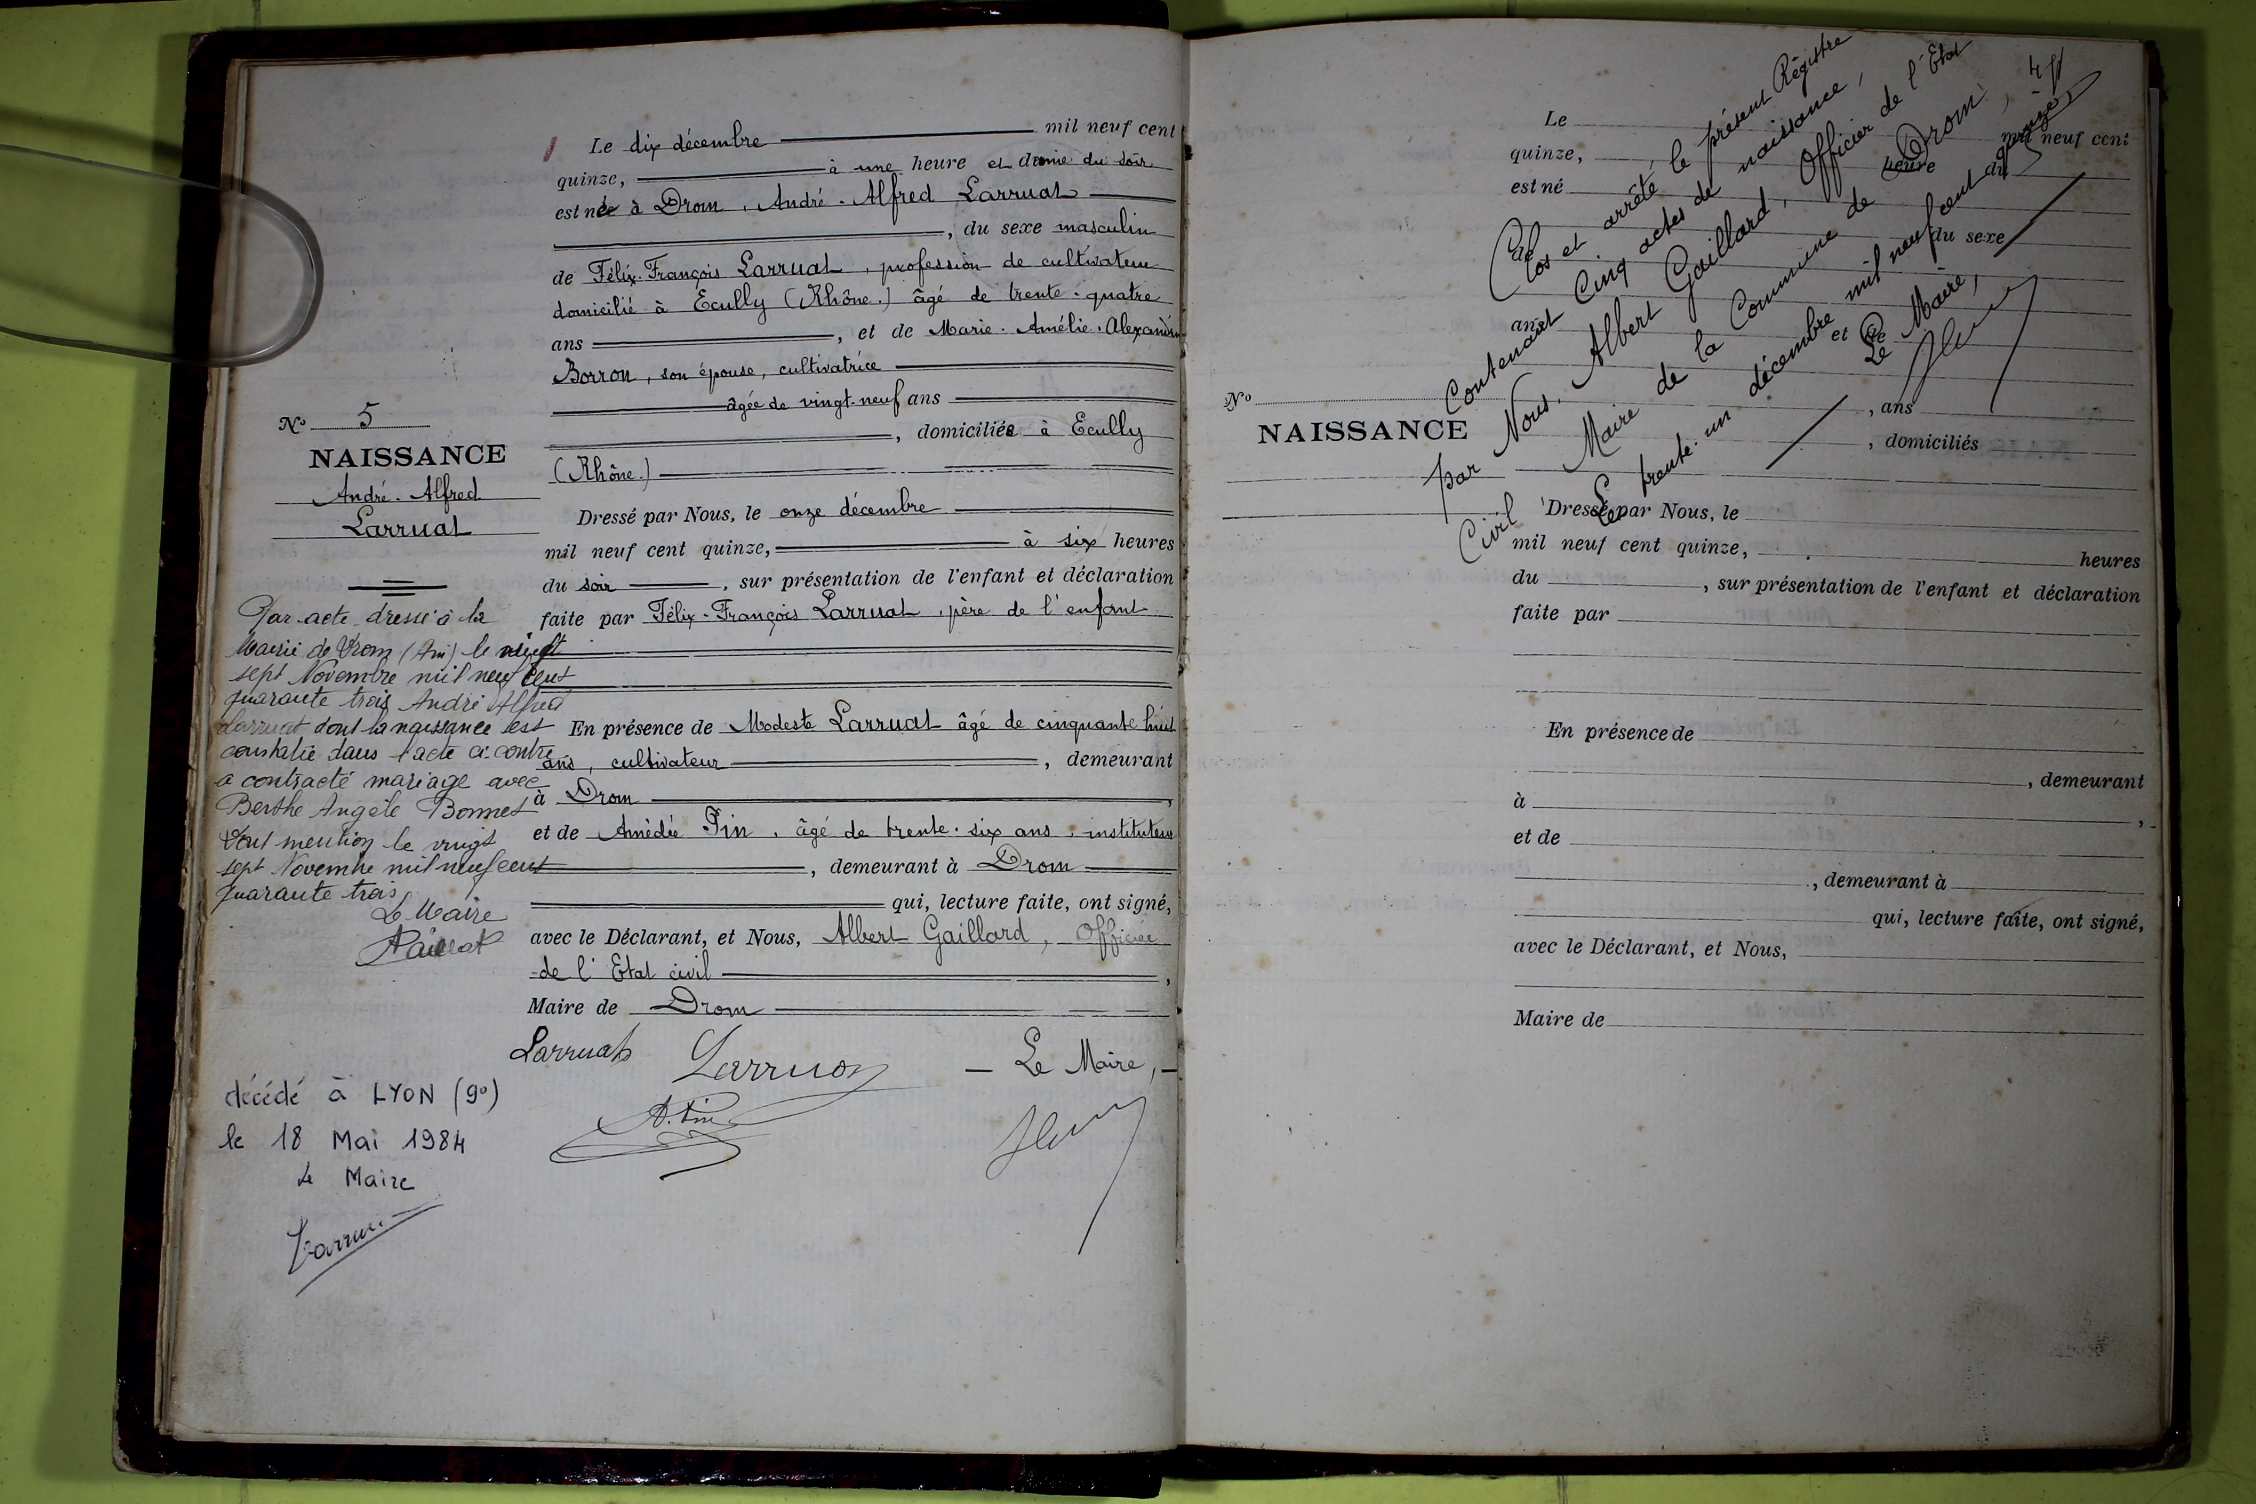 Le dix décembre mil neuf cent
quinze, à une heure et demie du soir
est né à Drom, André-Alfred Larruat
, du sexe masculin
de Félix-François Larruat, profession de cultivateur
domicilié à Ecully (Rhône.) âgé de trente-quatre
ans , et de Marie-Amélie-Alexandrine
Borron, son épouse, cultivatrice
âgée de vingt-neuf ans
, domiciliés à Ecully
(Rhône.)
Dressé par Nous, le onze décembre
mil neuf cent quinze, à six heures
du soir , sur présentation de l'enfant et déclaration
faite par Félix-François Larruat, père de l'enfant
En présence de Modeste Larruat âgé de cinquante huit
ans, cultivateur , demeurant
à Drom ,
et de Amédée Pin, âgé de trente-six ans, instituteur
, demeurant à Drom
qui, lecture faite, ont signé,
avec le Déclarant, et Nous, Albert Gaillard, Officier
de l'Etat civil ,
Maire de Drom
Larruat Larruat — Le Maire, —
A. Pin
No 5
NAISSANCE
André-Alfred
Larruat
Par acte dressé à la
Mairie de Drom (Ain) le vingt
sept Novembre mil neuf cent
quarante trois André Alfred
Larruat dont la naissance est
constatée dans l'acte ci-contre
a contracté mariage avec
Berthe Angèle Bonnet
Dont mention le vingt
sept Novembre mil neuf cent
quarante trois
Le Maire
décédé à LYON (9°)
le 18 Mai 1984
Le Maire
Larruat
Clos et arrêté le présent Régistre
Contenant Cinq actes de naissance,
par Nous, Albert Gaillard, Officier de l'Etat
Civil Maire de la Commune de Drom,
Le trente-un décembre mil neuf cent quinze,
Le Maire,
No
NAISSANCE
Le
mil neuf cent
quinze, heure du
est né
du sexe
de
ans et de
, ans
, domiciliés
Dressé par Nous, le
mil neuf cent quinze, heures
du , sur présentation de l'enfant et déclaration
faite par
En présence de
, demeurant
à ,
et de
, demeurant à
qui, lecture faite, ont signé,
avec le Déclarant, et Nous,
Maire de